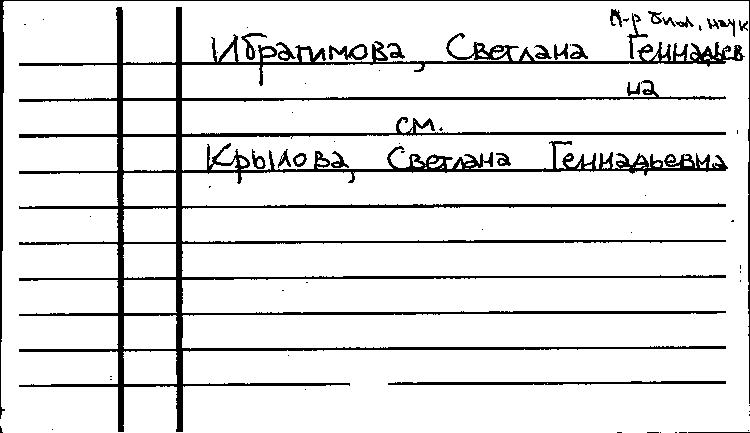 д-р биол. наук
Ибрагимова, Светлана Геннадьев
на
см.
Крылова, Светлана Геннадьевна